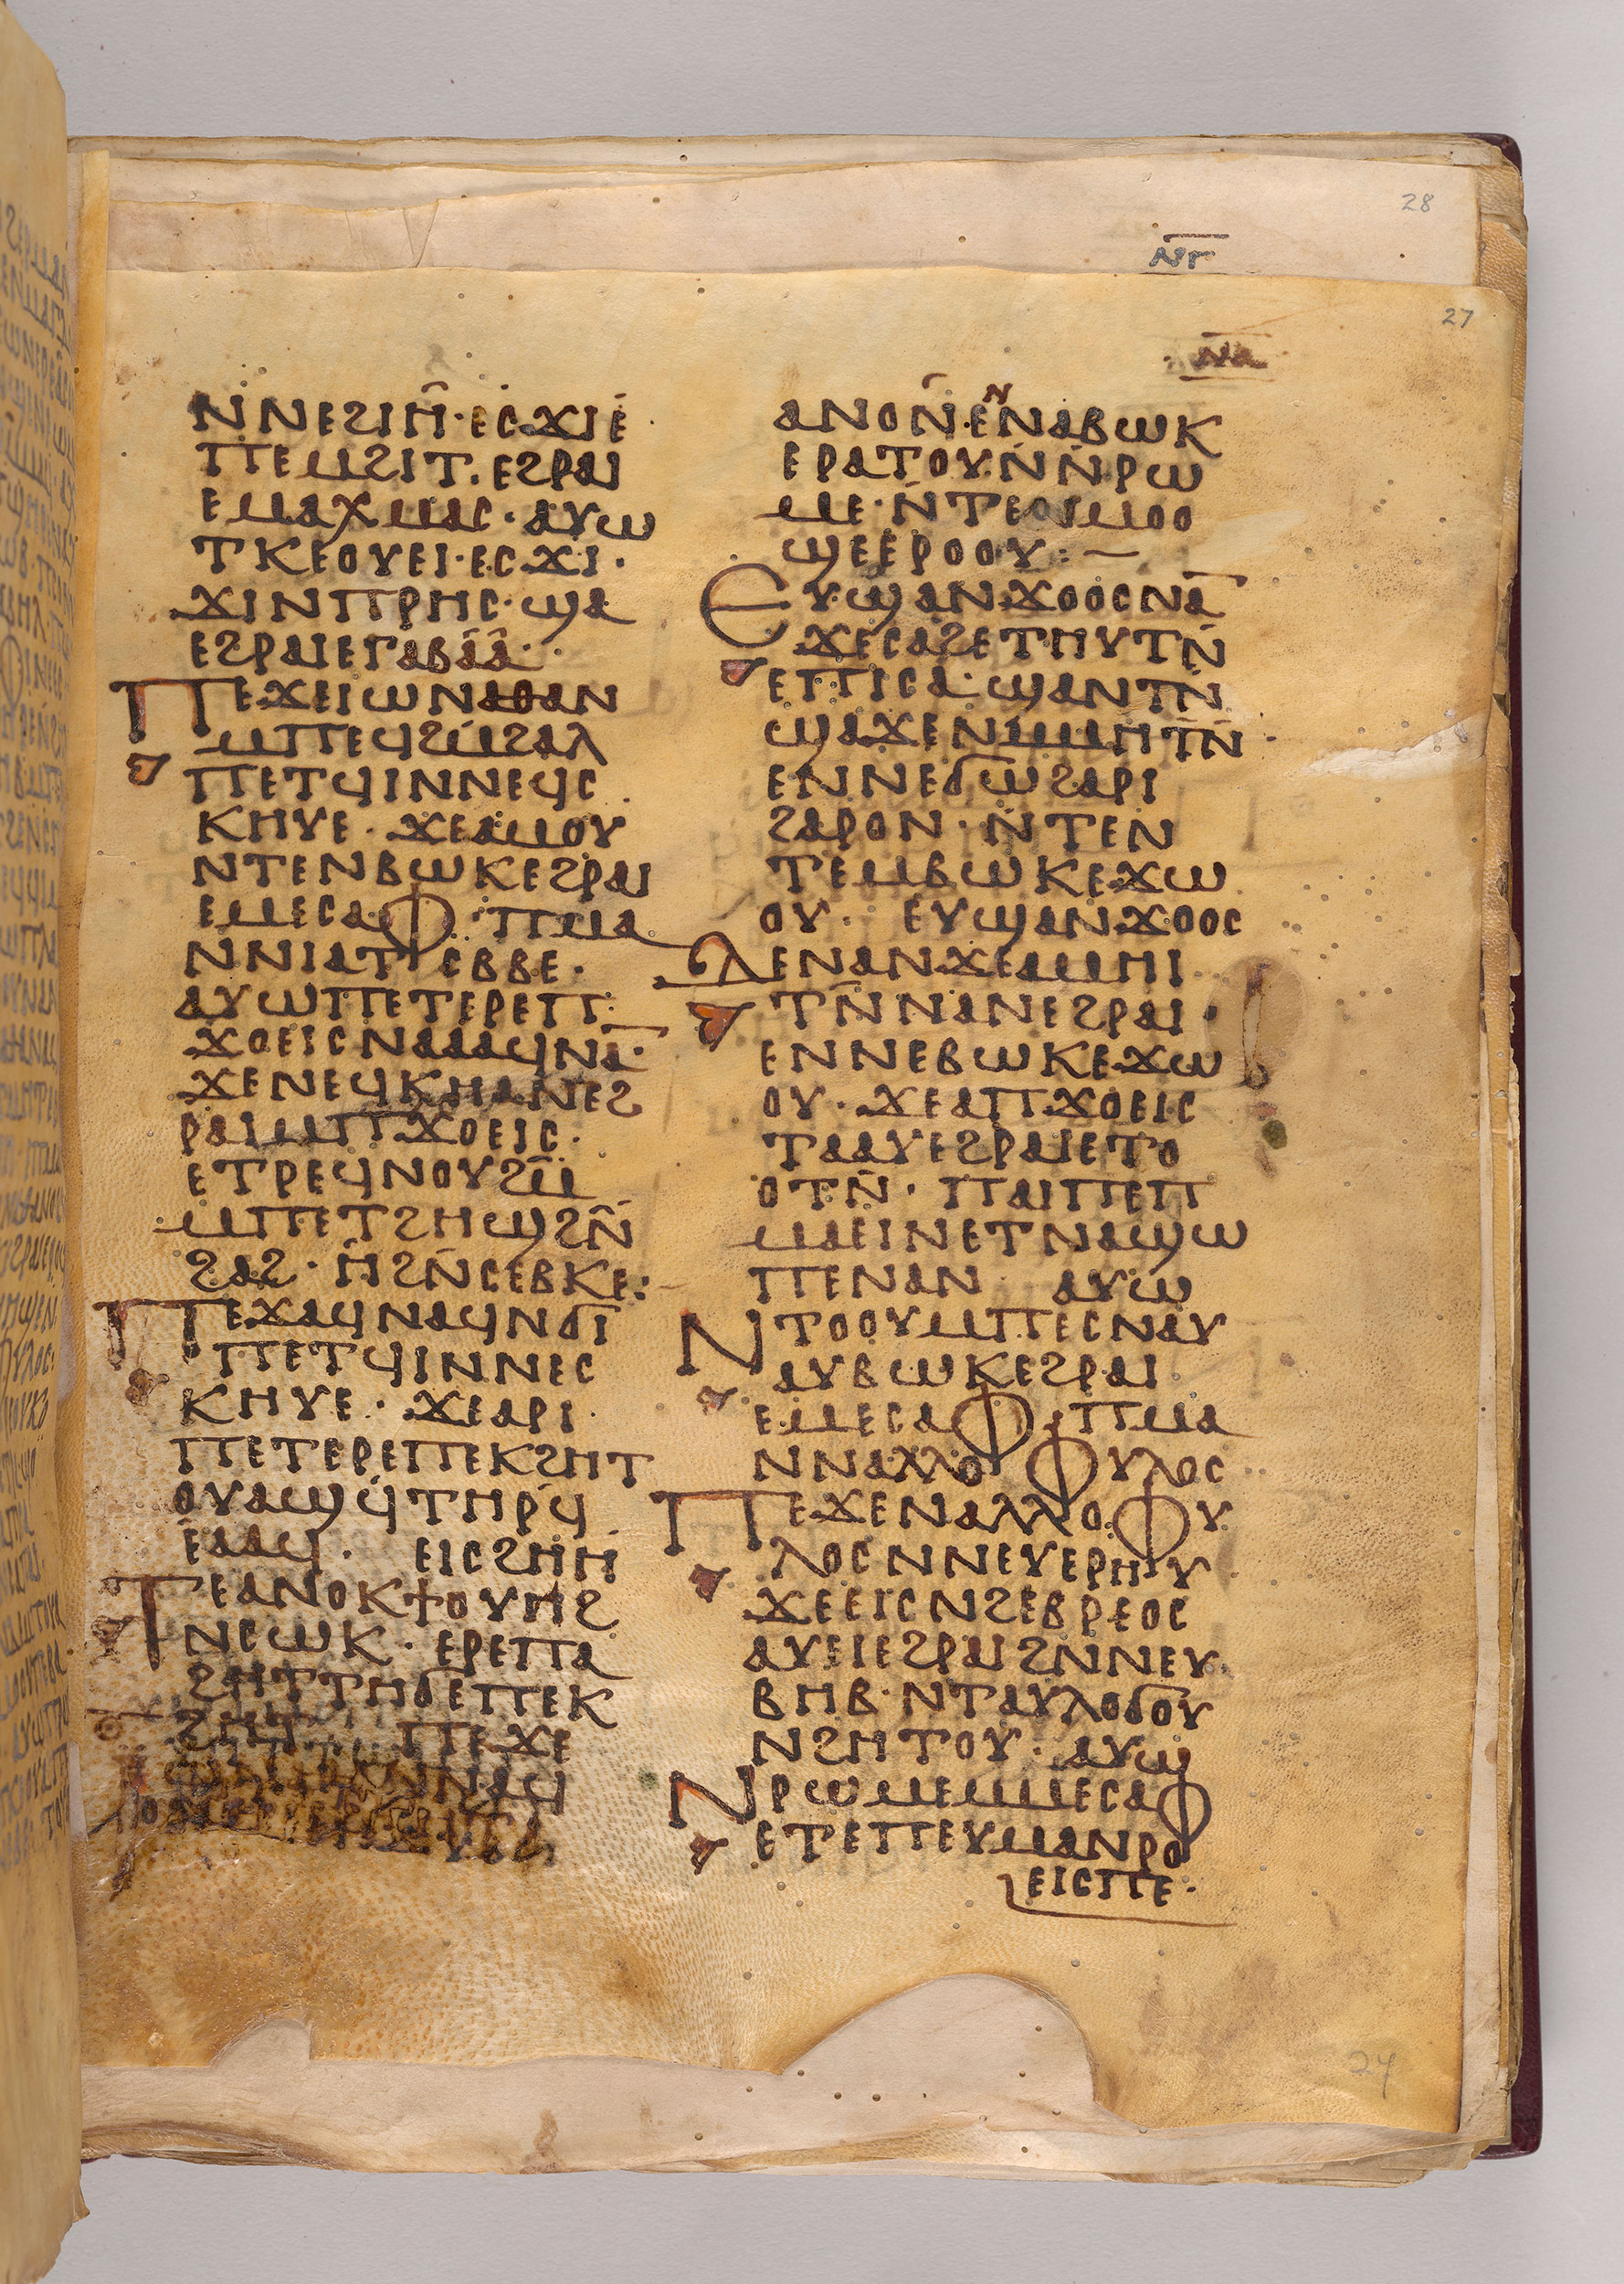 28
ⲛⲅ̅
27
ⲛⲁ̅
ⲛ̇ⲛⲉϩⲓⲏ̂·ⲉⲥϫⲓⲉ̇
ⲡⲉⲙϩⲓⲧ·ⲉϩⲣⲁⲓ
ⲉⲙⲁⲭⲙⲁⲥ·ⲁⲩⲱ
ⲧⲕⲉⲟⲩⲉⲓ·ⲉⲥϫⲓ·
ϫⲓⲛⲡⲣⲏⲥ·ϣⲁ
ⲉϩⲣⲁⲓⲉⲅⲁⲃⲁⲁ·
ⲡⲉϫⲉⲓⲱⲛⲁⲑⲁⲛ
ⲙⲡⲉϥϩⲙ̇ϩⲁⲗ
ⲡⲉⲧϥⲓⲛⲛⲉϥⲥ
ⲕⲏⲩⲉ·ϫⲉⲁⲙⲟⲩ
ⲛⲧⲉⲛⲃⲱⲕⲉϩⲣⲁⲓ
ⲉⲙⲉⲥⲁⲫ·ⲡⲙⲁ
ⲛⲛⲓⲁⲧⲥⲃⲃⲉ·
ⲁⲩⲱⲡⲉⲧⲉⲣⲉⲡ
ϫⲟⲉⲓⲥⲛⲁⲁⲁϥⲛⲁ̅·
ϫⲉⲛⲉϥⲕⲏⲁⲛⲉϩ
ⲣⲁⲓⲙⲡϫⲟⲉⲓⲥ·
ⲉⲧⲣⲉϥⲛⲟⲩϩⲙ̅
ⲙⲡⲉⲧϩⲏϣϩⲛ̂
ϩⲁϩ·ⲏ̇ϩⲛ̇ⲥⲉⲃⲕⲉ:
ⲡⲉϫⲁϥⲛⲁϥⲛϭⲓ
ⲡⲉⲧϥⲓⲛⲛⲉⲥ
ⲕⲏⲩⲉ·ϫⲉⲁⲣⲓ
ⲡⲉⲧⲉⲣⲉⲡⲉⲕϩⲏⲧ
ⲟⲩⲁϣϥ̇ⲧⲏⲣϥ̇
ⲉⲁⲁϥ· ⲉⲓⲥϩⲏⲏ
ⲧⲉⲁⲛⲟⲕϯⲟⲩⲏϩ
ⲛⲥⲱⲕ·ⲉⲣⲉⲡⲁ
ϩⲏⲧⲧⲏϭⲉⲡⲉⲕ
ϩⲏⲧ· ⲡⲉϫⲉ
ⲁⲛⲟⲛ̇·ⲉⲛⲛⲁⲃⲱⲕ
ⲉⲣⲁⲧⲟⲩⲛ̇ⲛ̇ⲣⲱ
ⲙⲉ·ⲛ̇ⲧⲉⲟⲓⲙⲟⲟ
ϣⲉⲉⲣⲟⲟⲩ:—
ⲉⲩϣⲁⲛϫⲟⲟⲥⲛⲁ̅
ϫⲉⲥⲁϩⲉⲧⲏⲩⲧⲛ̇
ⲉⲡⲓⲥⲁ·ϣⲁⲛⲧⲛ̇
ϣⲁϫⲉⲛⲙ̇ⲙⲏⲧⲛ̇·
ⲉⲛⲛⲉϭⲱϩⲁⲣⲓ
ϩⲁⲣⲟⲛ·ⲛ̇ⲧⲉⲛ
ⲧⲉⲙⲃⲱⲕⲉϫⲱ
ⲟⲩ· ⲉⲩϣⲁⲛϫⲟⲟⲥ
ⲇⲉⲛⲁⲛϫⲉⲁⲙⲏⲓ
ⲧⲛ̂ⲛⲁⲛⲉϩⲣⲁⲓ·
ⲉⲛⲛⲉⲃⲱⲕⲉϫⲱ
ⲟⲩ·ϫⲉⲁⲡϫⲟⲉⲓⲥ
ⲧⲁⲁⲩⲉϩⲣⲁⲓⲉⲧⲟ
ⲟⲧⲛ̂·ⲡⲁⲓⲡⲉⲡ
ⲙⲁⲉⲓⲛⲉⲧⲛⲁϣⲱ
ⲡⲉⲛⲁⲛ ⲁⲩⲱ
ⲛⲧⲟⲟⲩⲙⲡⲉⲥⲛⲁⲩ
ⲁⲩⲃⲱⲕⲉϩⲣⲁⲓ
ⲉⲙⲉⲥⲁⲫ·ⲡⲙⲁ
ⲛⲛⲁⲗⲗⲟⲫⲩⲗⲟⲥ·
ⲡⲉϫⲉⲛⲁⲗⲗⲟⲫⲩ
ⲗⲟⲥⲛⲛⲉⲩⲉⲣⲏⲩ
ϫⲉⲉⲓⲥⲛϩⲉⲃⲣⲉⲟⲥ
ⲁⲩⲉⲓⲉϩⲣⲁⲓϩⲛⲛⲉⲩ
ⲃⲏⲃ·ⲛⲧⲁⲩⲗⲟϭⲟⲩ
ⲛϩⲏⲧⲟⲩ·ⲁⲩⲱ
ⲛⲣⲱⲙⲉⲙⲙⲉⲥⲁⲫ
ⲉⲧⲉⲡⲉⲩⲙⲁⲛⲣⲟ
ⲉⲓⲥⲡⲉ·
24